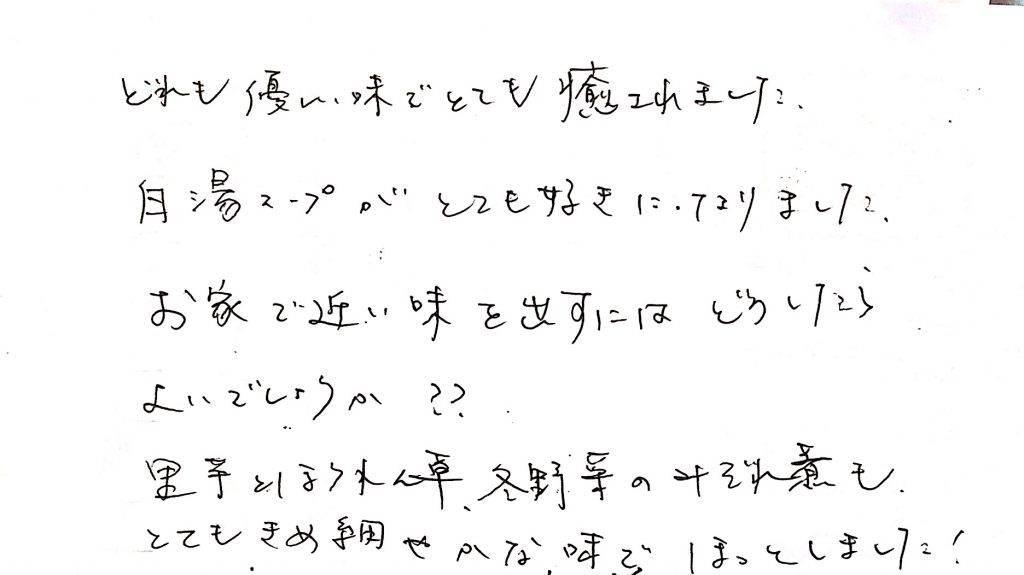 どれも優しい味でとても癒されました.
白湯スープがとても好きになりました.
お家で近い味を出すにはどうしたら
よいでしょうか??
里芋とほうれん草、冬野菜のみぞれ煮も.
とてもきめ細やかな味でほっとしました!